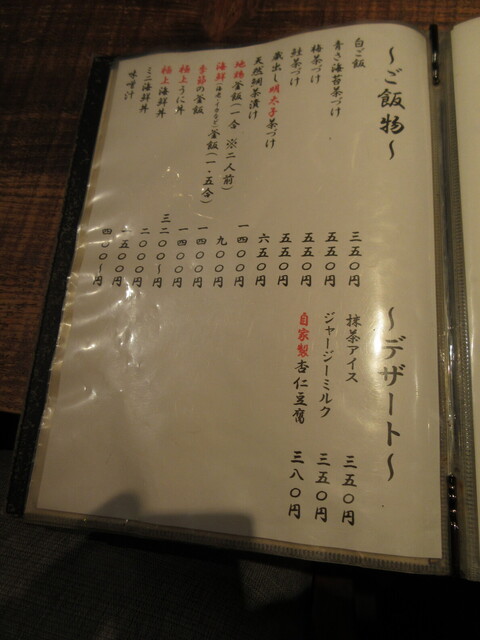 ～ご飯物～
白ご飯 三五〇円
青さ海苔茶づけ 五五〇円
梅茶づけ 五五〇円
鮭茶づけ 五五〇円
蔵出し明太子茶づけ 六五〇円
天然鯛茶漬け 一四〇〇円
地鶏釜飯(一合 ※二人前) 九〇〇円
海鮮(海老・イカなど)釜飯(一・五合) 一四〇〇円
季節の釜飯 一四〇〇円
極上うに丼 三二〇〇～円
極上海鮮丼 二〇〇〇円
ミニ海鮮丼 一五〇〇円
味噌汁 四〇〇～円
～デザート～
抹茶アイス 三五〇円
ジャージーミルク 三五〇円
自家製杏仁豆腐 三八〇円